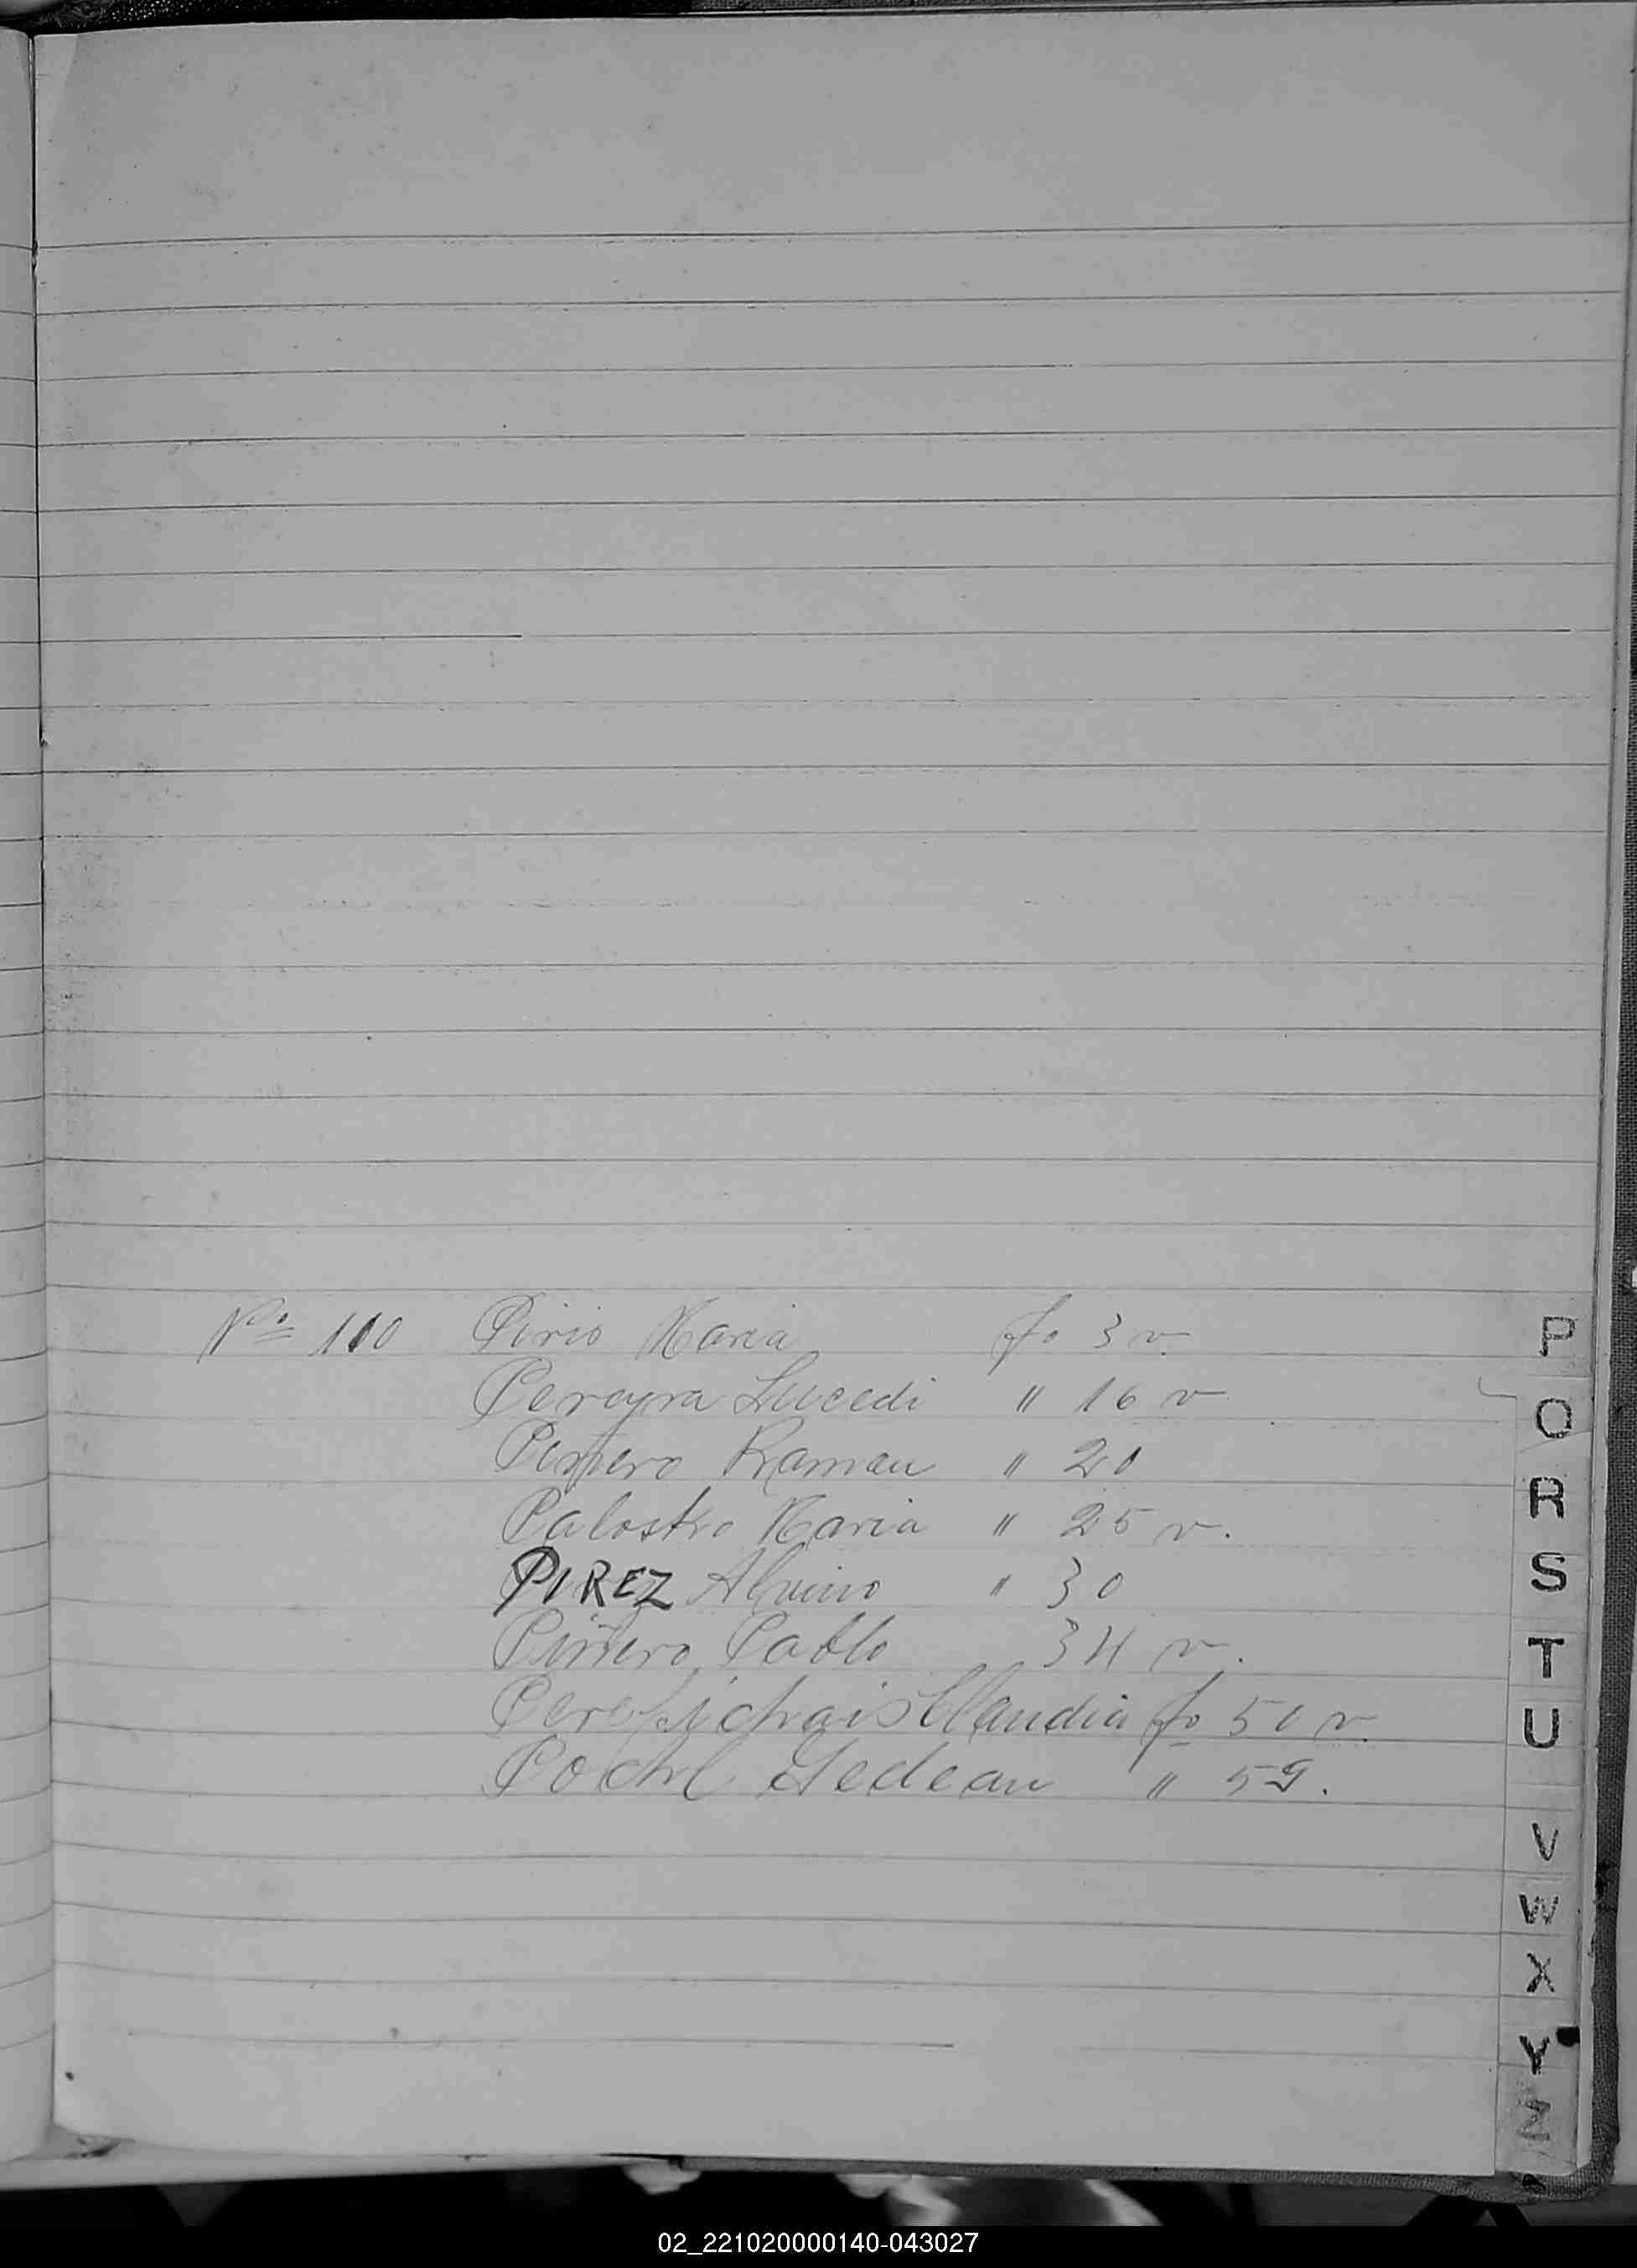 Nº 110 Piris Maria fo 3 v.
Pereyra Lucedi " 16 v
Piñero Ramon " 20
Palostro Maria " 25 v.
PIREZ Alvino " 30
Piñero Pablo 34 v.
Claudia fo 50 v.
Pochl Gedeau " 59.
P
Q
R
S
T
U
V
W
X
Y
Z
02_221020000140-043027